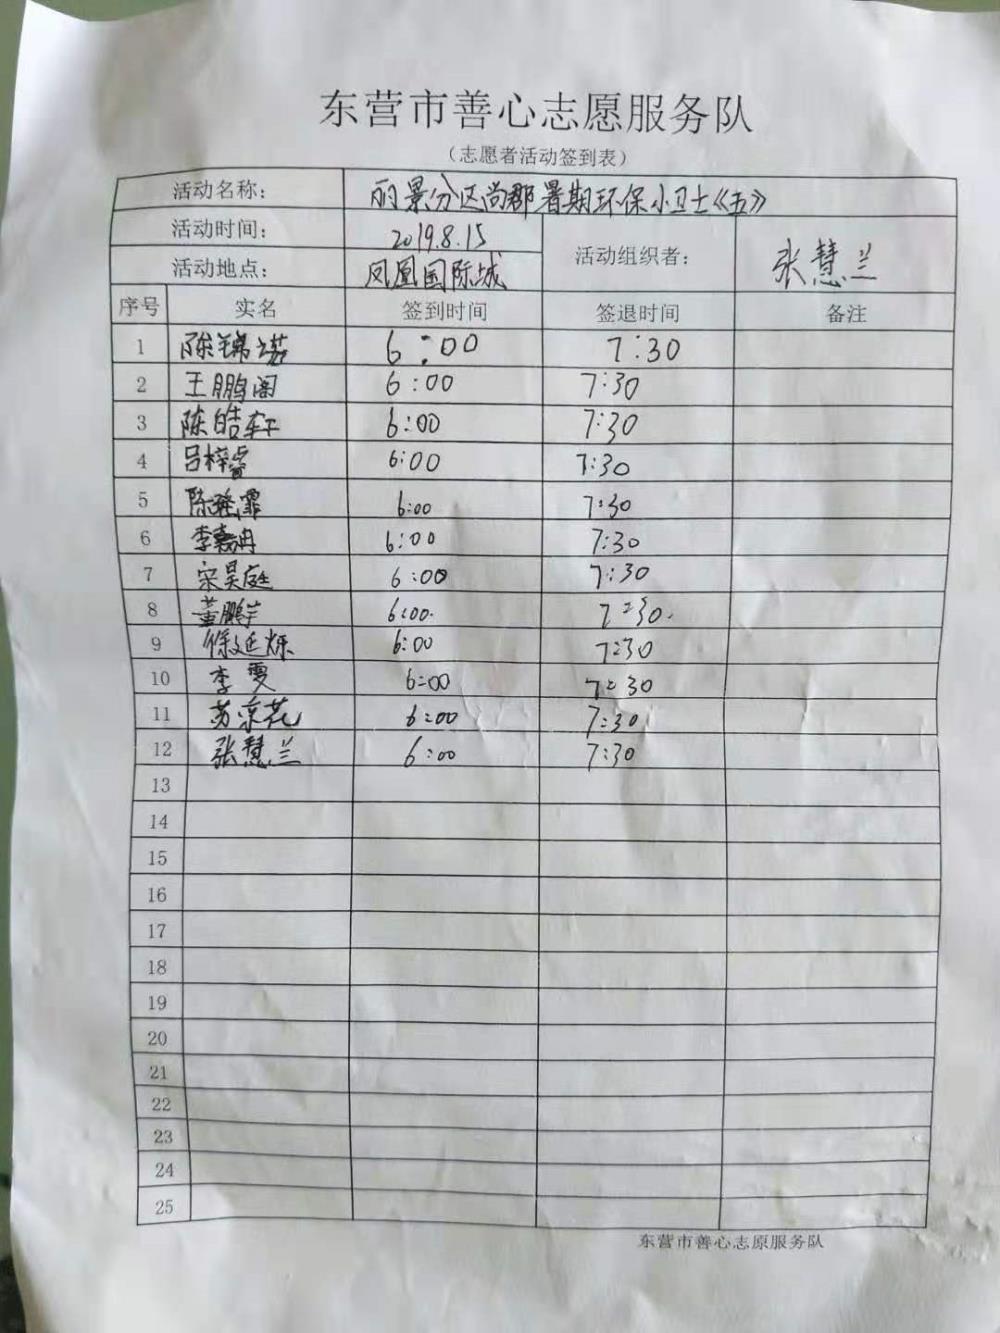 东营市善心志愿服务队
（志愿者活动签到表）
活动名称： 丽景分区尚郡暑期环保小卫士《五》
活动时间： 2019.8.15 活动组织者： 张慧兰
活动地点： 凤凰国际城
序号 实名 签到时间 签退时间 备注
1 陈锦诺 6:00 7:30
2 王鹏阁 6:00 7:30
3 陈皓轩 6:00 7:30
4 吕梓睿 6:00 7:30
5 陈瑶霏 6:00 7:30
6 李嘉冉 6:00 7:30
7 宋昊庭 6:00 7:30
8 董鹏 6:00. 7:30.
9 徐延烁 6:00 7:30
10 李雯 6:00 7:30
11 苏京花 6:00 7:30
12 张慧兰 6:00 7:30
13
14
15
16
17
18
19
20
21
22
23
24
25
东营市善心志原服务队